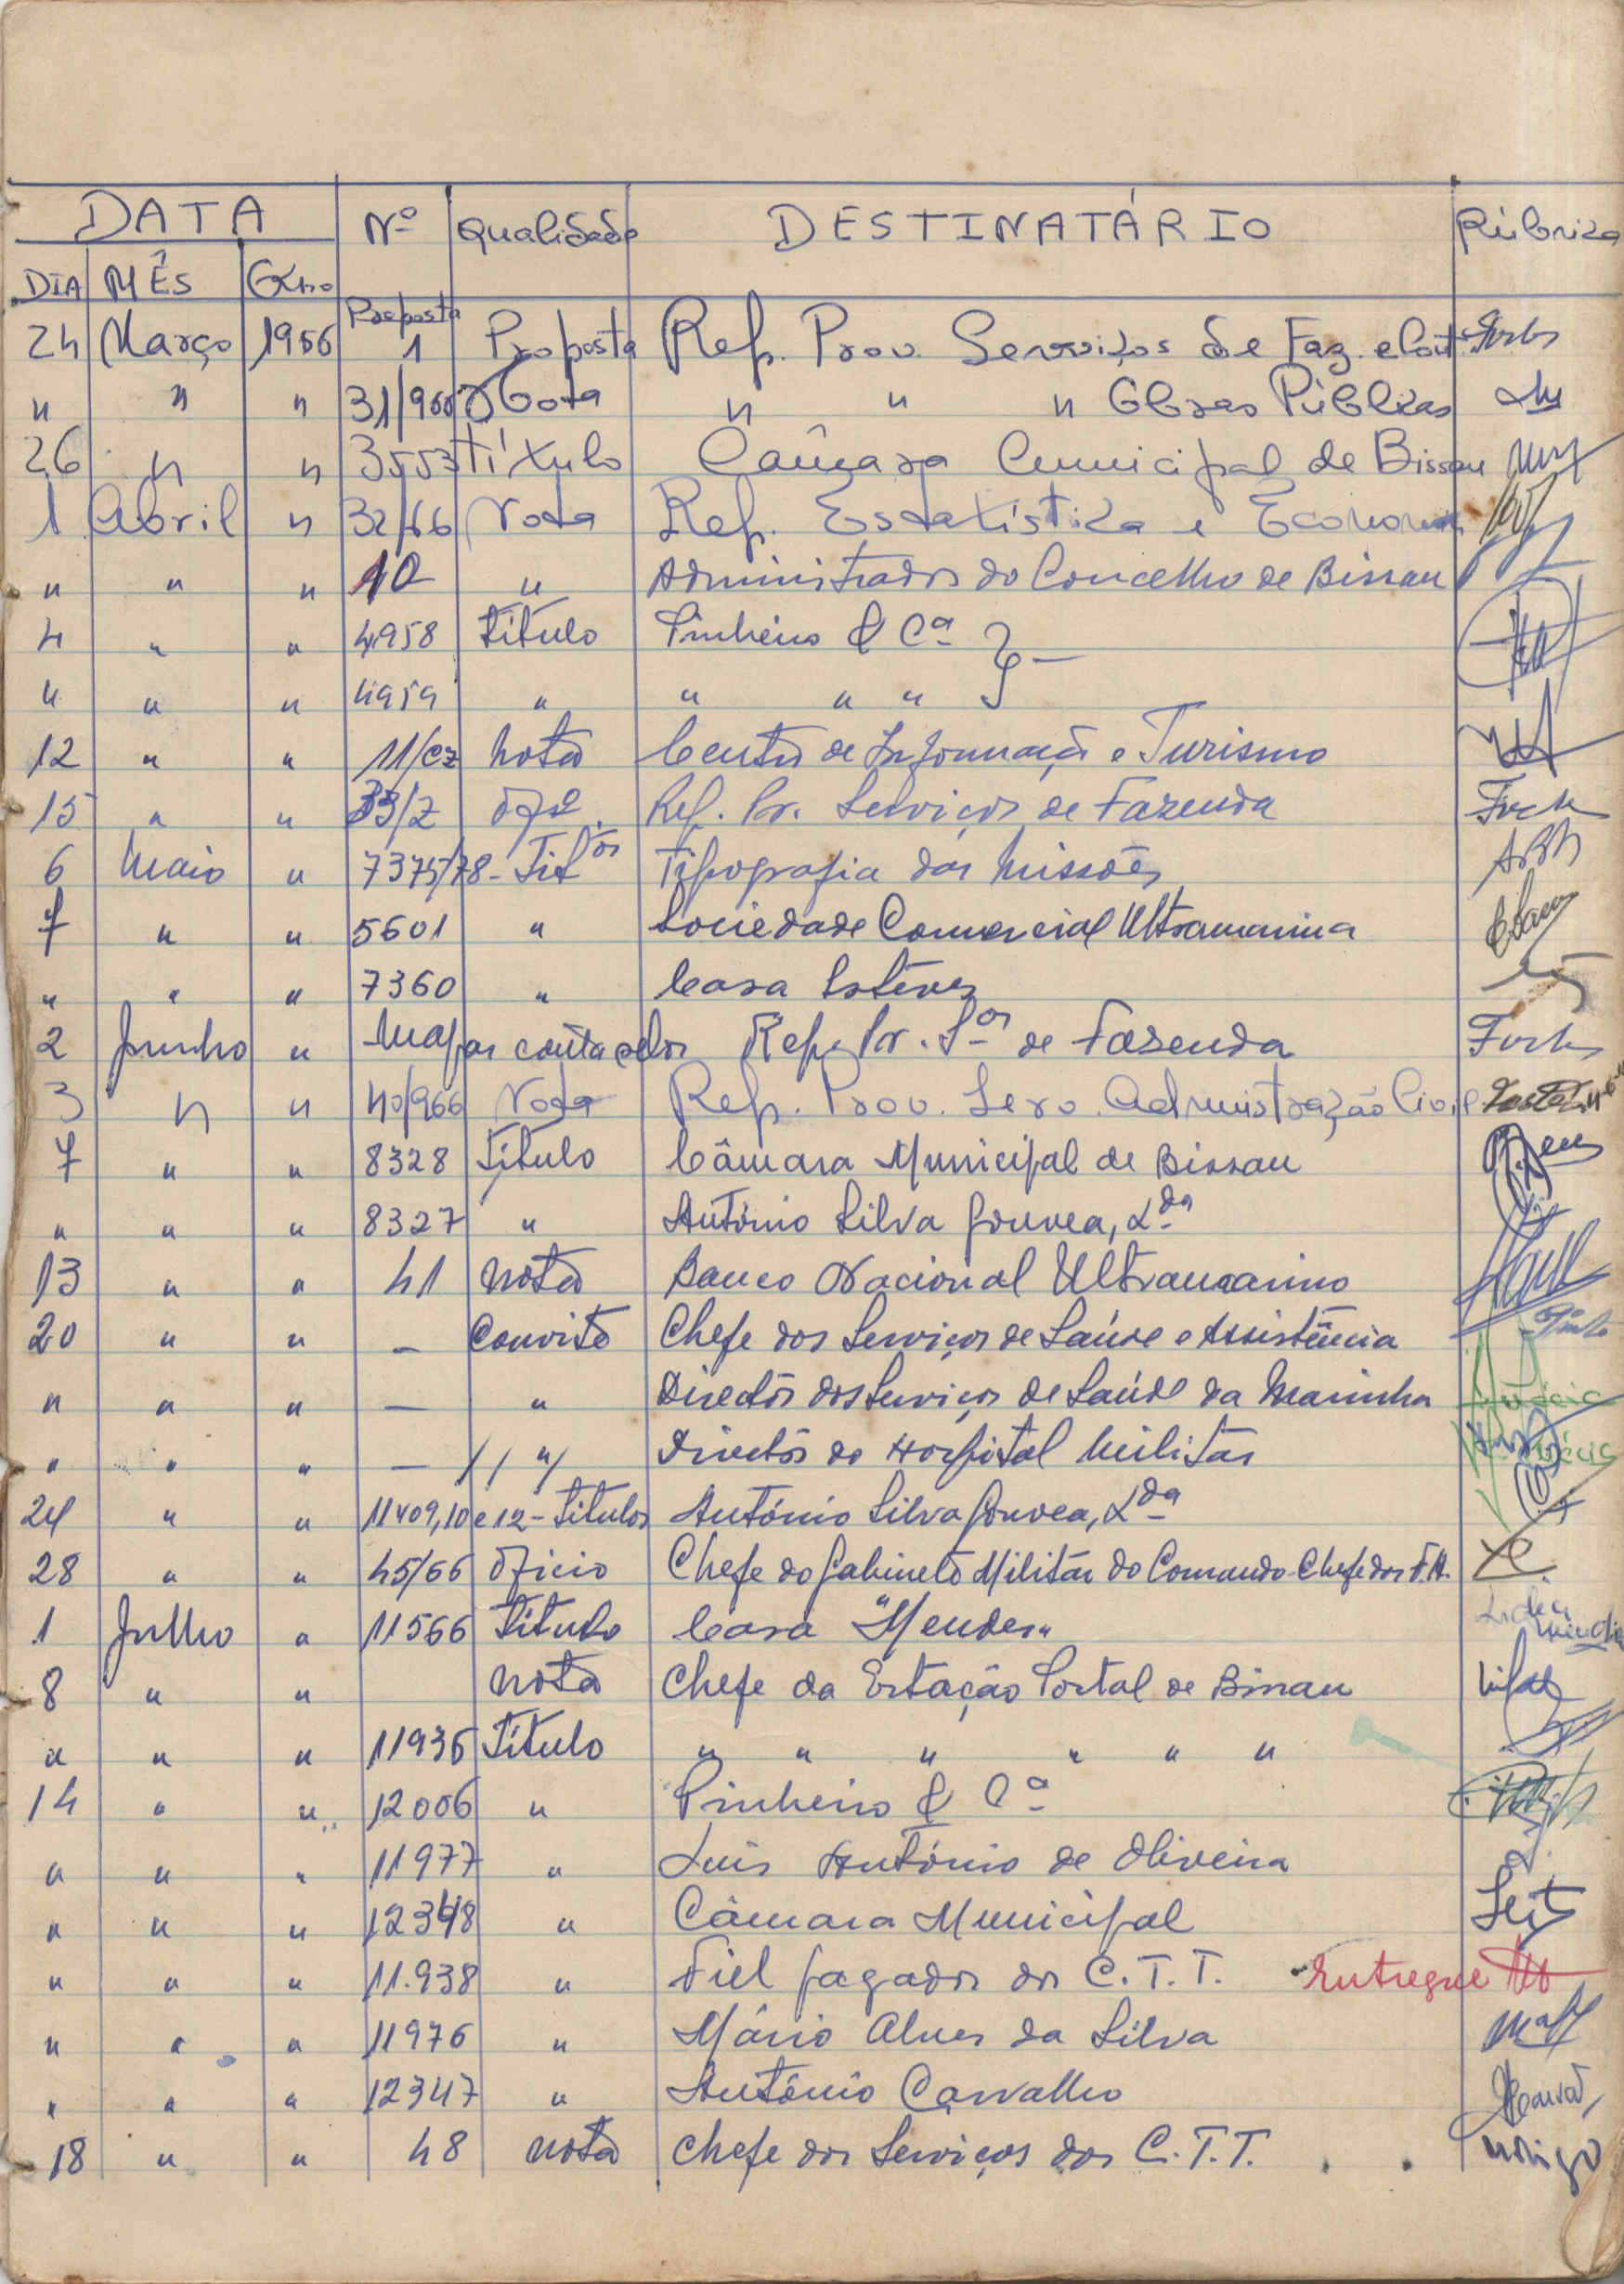 DATA Nº Qualidade DESTINATÁRIO Rúbrica
DIA MÊS Ano
24 Março 1966 Proposta 1 Proposta Rep. Prov. Serviços de Faz. e Cont.
" " " 31/966 Nota " " " Obras Públicas
26 " " 3553 Título Câmara Municipal de Bissau
1 Abril " 32/66 Nota Rep. Estatística e Economia
" " " 10 " Administrador do Concelho de Bissau
4 " " 4958 Título Pinheiro & Cª
" " " 4959 " " " "
12 " " 11/CZ Nota Centro de Informação e Turismo
15 " " 33/Z Ofº. Rep. Pr. Serviços de Fazenda
6 Maio " 7375/78 - Titºs Tipografia das Missões
7 " " 5601 " Sociedade Comercial Ultramarina
" " " 7360 " Casa Esteves
2 Junho " Mapas conta pelos Rep. Pr. Sºs de Fazenda
3 " " 40/966 Nota Rep. Prov. Serv. Admistração Civil
7 " " 8328 Título Câmara Municipal de Bissau
" " " 8327 " António Silva Gouvea, Lda
13 " " 41 Nota Banco Nacional Ultramarino
20 " " — Convite Chefe dos Serviços de Saúde e Assistência
" " " — " Director dos Serviços de Saúde da Marinha
" " " — " Director do Hospital Militar
24 " " 11409,10 e 12 - Titulos António Silva Gouvea, Lda
28 " " 45/66 Oficio Chefe do Gabinete Militar do Comando-Chefe das F.A.
1 Julho " 11566 Título Casa "Mendes"
8 " " Nota Chefe da Estação Postal de Bissau
" " " 11936 Título " " " " " "
14 " " 12006 " Pinheiro & Cª
" " " 11977 " Luis António de Oliveira
" " " 12348 " Câmara Municipal
" " " 11.938 " Fiel pagador dos C.T.T. Entregue
" " " 11976 " Mário Alves da Silva
" " " 12347 " António Carvalho
18 " " 48 Nota Chefe dos Serviços dos C.T.T.